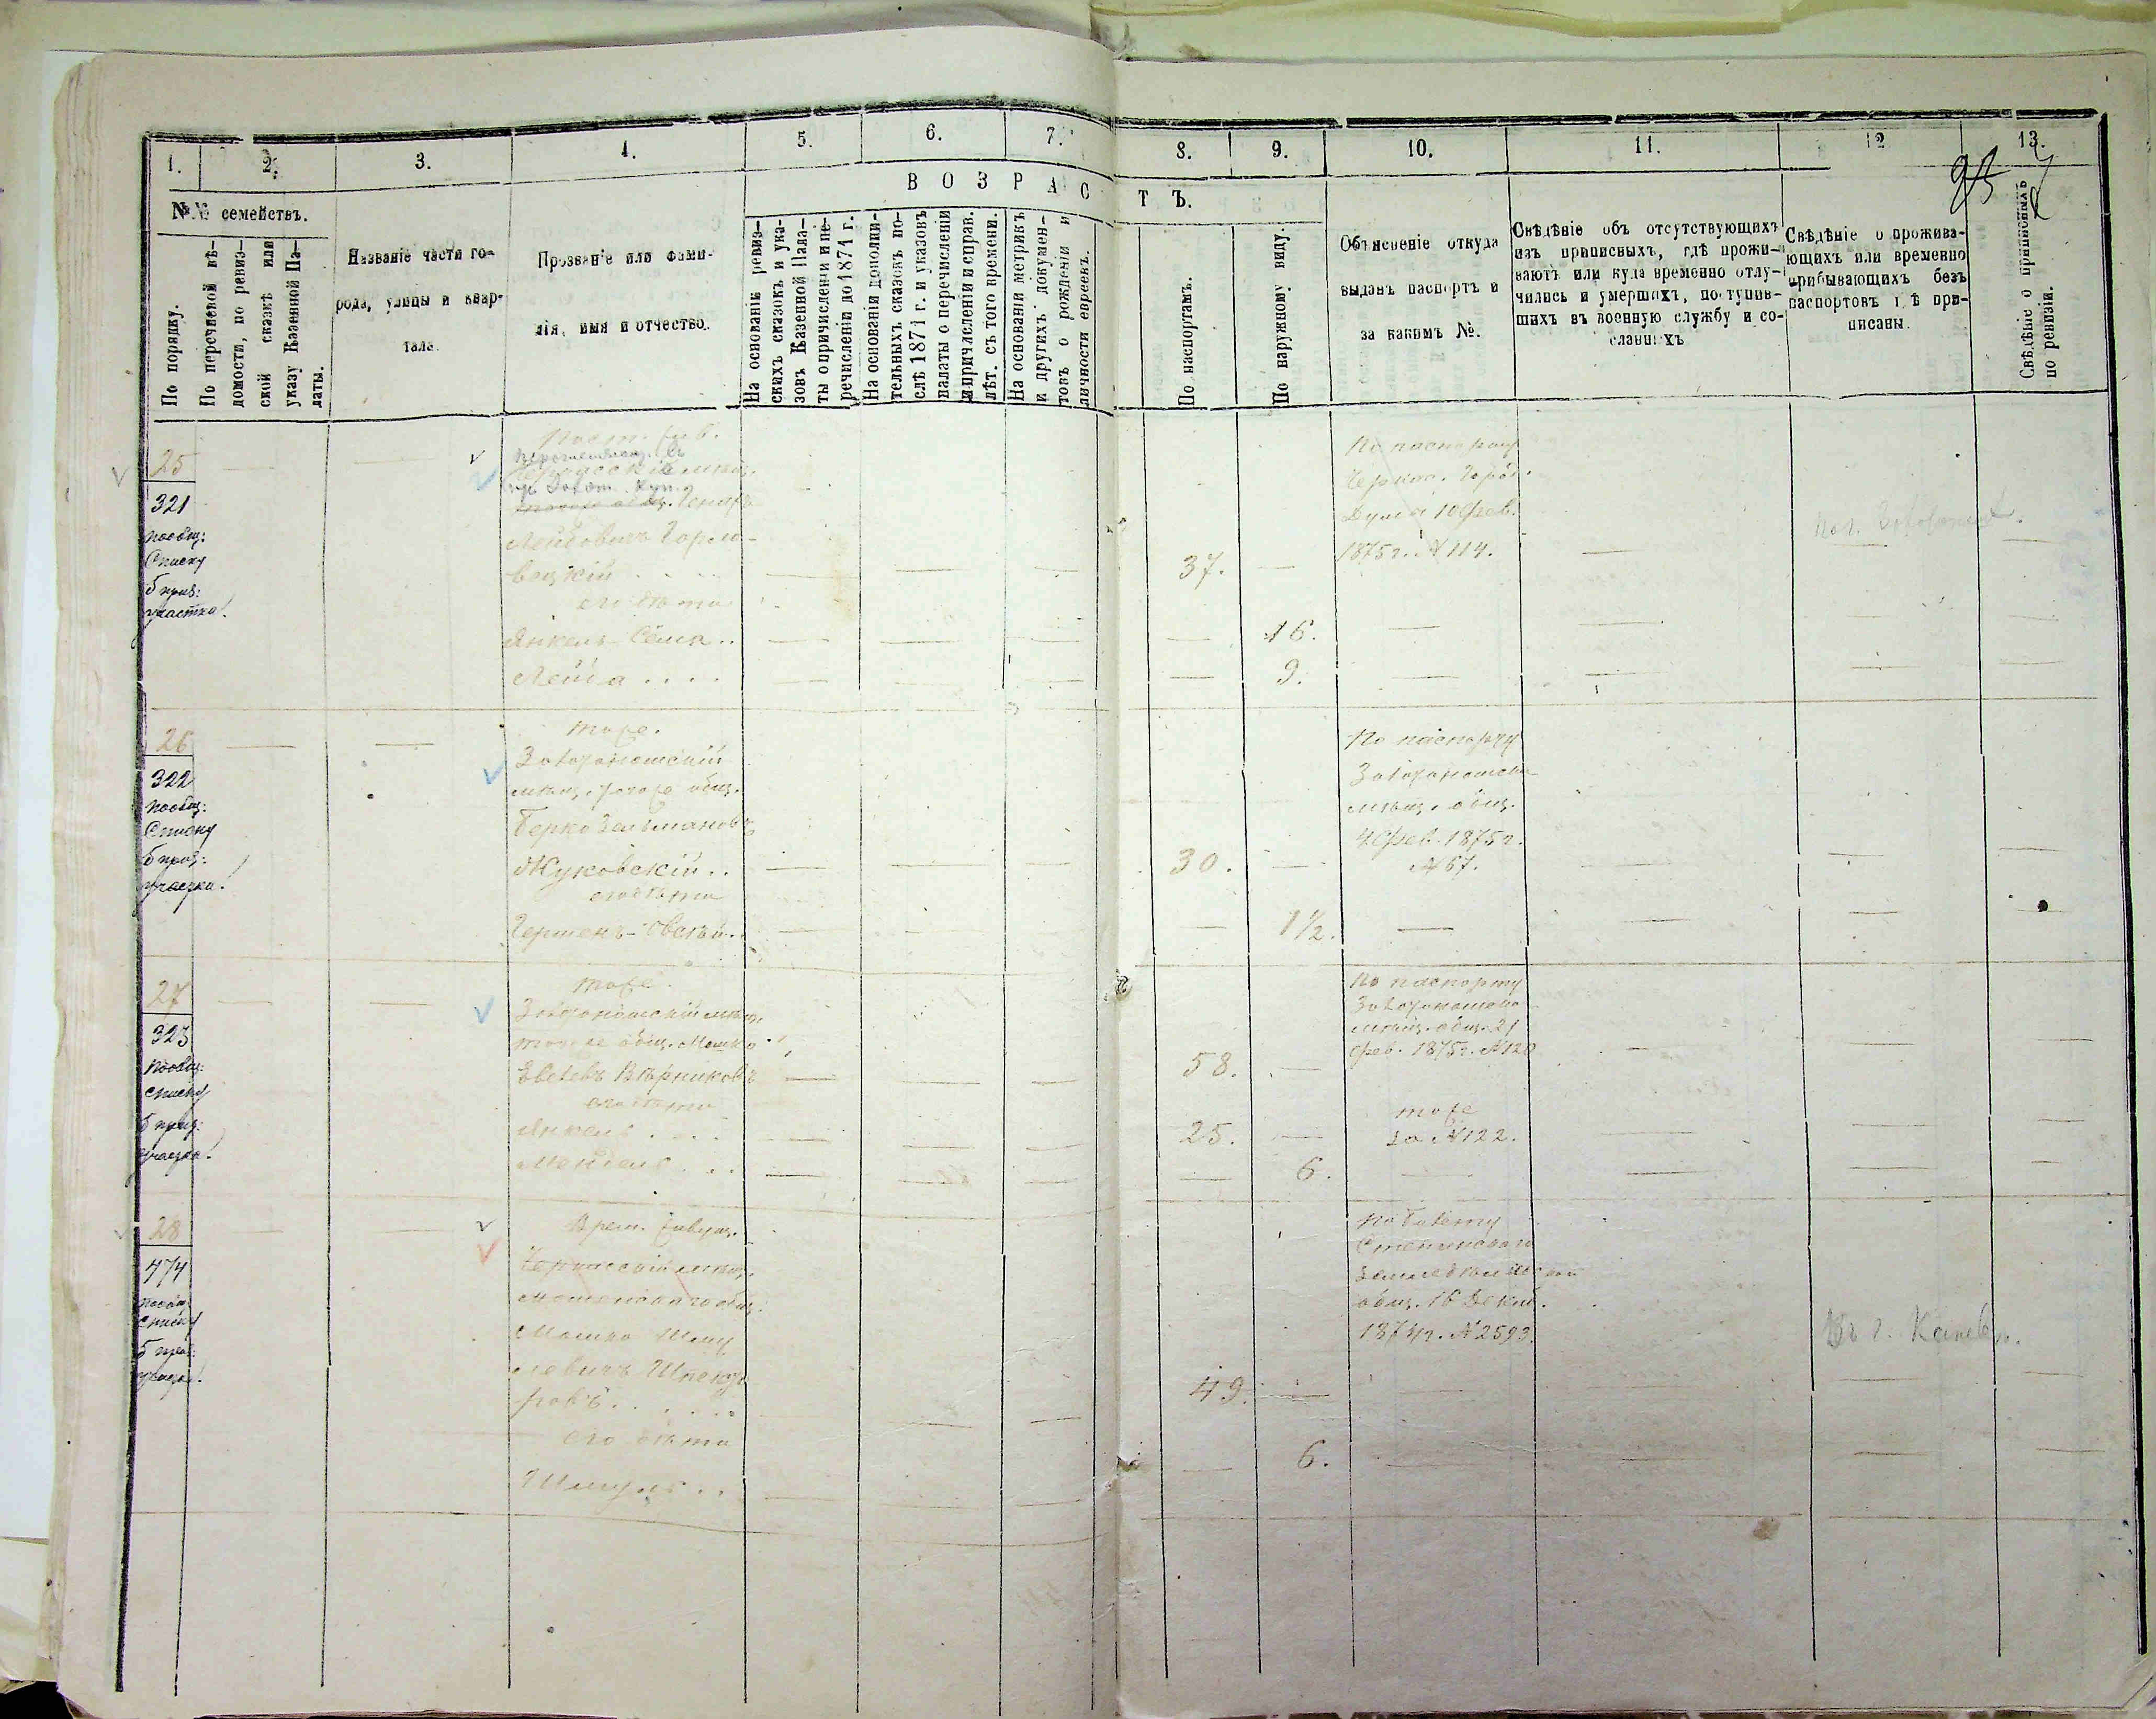 1. 2. 3. 4. 5. 6. 7. 8. 9. 10. 11. 12 13.
95
ВОЗРАСТЪ.
№№ семействъ.
По порядку.
По перечневой вѣ-
домости, по ревиз-
ской сказкѣ или
указу Казенной Па-
латы.
Названіе части го-
рода, улицы и квар-
тала.
Прозваніе или фами-
лія, имя и отчество.
На основаніи ревиз-
скихъ сказокъ и ука-
зовъ Казенной Пала-
ты о причисленіи и пе-
речисленіи до 1871 г.
На основаніи дополни-
тельныхъ сказокъ по-
слѣ 1871 г. и указовъ
палаты о перечисленіи
и причисленіи и справ.
лѣт. съ того времени.
На основаніи метрикъ
и другихъ докумен-
товъ о рожденіи и
личности евреевъ.
По паспортамъ.
По наружному виду.
Объясненіе откуда
выданъ паспортъ и
за какимъ №.
Свѣдѣніе объ отсутствующихъ
изъ приписныхъ, гдѣ прожи-
ваютъ или куда временно отлу-
чились и умершихъ, поступив-
шихъ въ военную службу и со-
сланныхъ
Свѣдѣніе о прожива-
ющихъ или временно
прибывающихъ безъ
паспортовъ гдѣ при-
писаны.
Свѣдѣніе о приписныхъ
по ревизіи.
25
321
пообщ:
Списку
5 приз:
участка!
Пост. жив.
Черкасскіе мѣщ.
Лейбовичъ Горо-
децкій
его дѣти
Янкель-Сёма..
Лейба....
37.
16.
9.
По паспорту
Черкас. Город.
Думы 10 Фев.
1875 г. № 114.
26
322
пообщ:
Списку
5 приз:
участка!
тоже.
Золотоношскій
мѣщ. того же общ.
Берко Зельмановъ
Жуковскій..
его дѣти
Гершенъ-Овсѣй..
30.
1½.
По паспорту
Золотоношск.
мѣщ. общ.
4 Фев. 1875 г.
№ 67.
27
323
пообщ:
списку
5 приз:
участка!
тоже.
Золотоношскій мѣщ.
того же общ. Мошко
Вѣрниковъ
его дѣти
Янкель....
Мендель...
58.
25.
6.
По паспорту
Золотоношск.
мѣщ. общ. 21
Фев. 1875 г. № 120
тоже
за № 122.
28
474
пообщ:
списку
5 приз:
участка!
Врем. живущ.
Черкасскій мѣщ.
общ:
Мошко Шму
левичъ
его дѣти
49.
6.
По билету
общ. 16 Декаб.
1874 г. № 2593.
Въ г. Каневѣ.